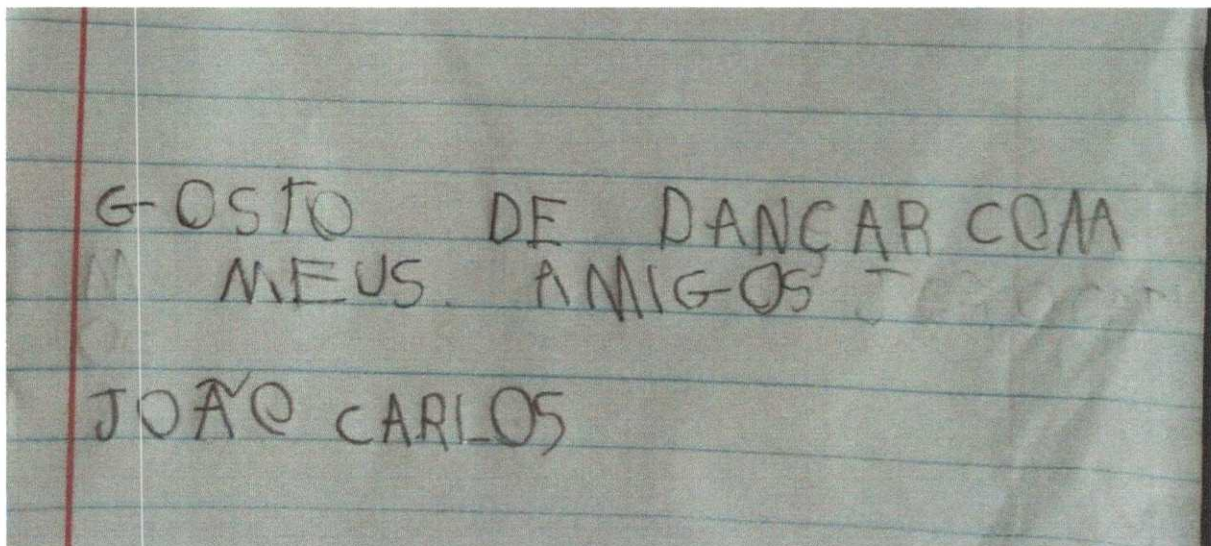 GOSTO DE DANÇAR COM
MEUS. AMIGOS
JOÃO CARLOS